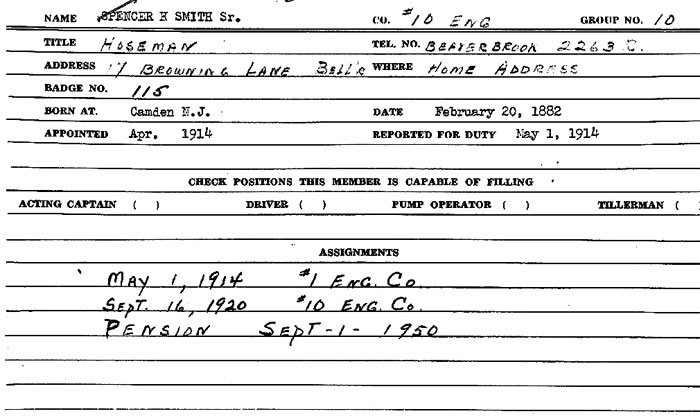 NAME SPENCER H SMITH Sr. CO. #10 ENG GROUP NO. 10
TITLE HOSEMAN TEL. NO. BEAVERBROOK 2263 C.
ADDRESS 17 BROWNING LANE BELL'R WHERE HOME ADDRESS
BADGE NO. 115
BORN AT. Camden N.J. DATE February 20, 1882
APPOINTED Apr. 1914 REPORTED FOR DUTY May 1, 1914
CHECK POSITIONS THIS MEMBER IS CAPABLE OF FILLING
ACTING CAPTAIN ( ) DRIVER ( ) PUMP OPERATOR ( ) TILLERMAN (
ASSIGNMENTS
MAY 1, 1914 #1 ENG. CO.
SEPT. 16, 1920 #10 ENG. CO.
PENSION SEPT-1-1950